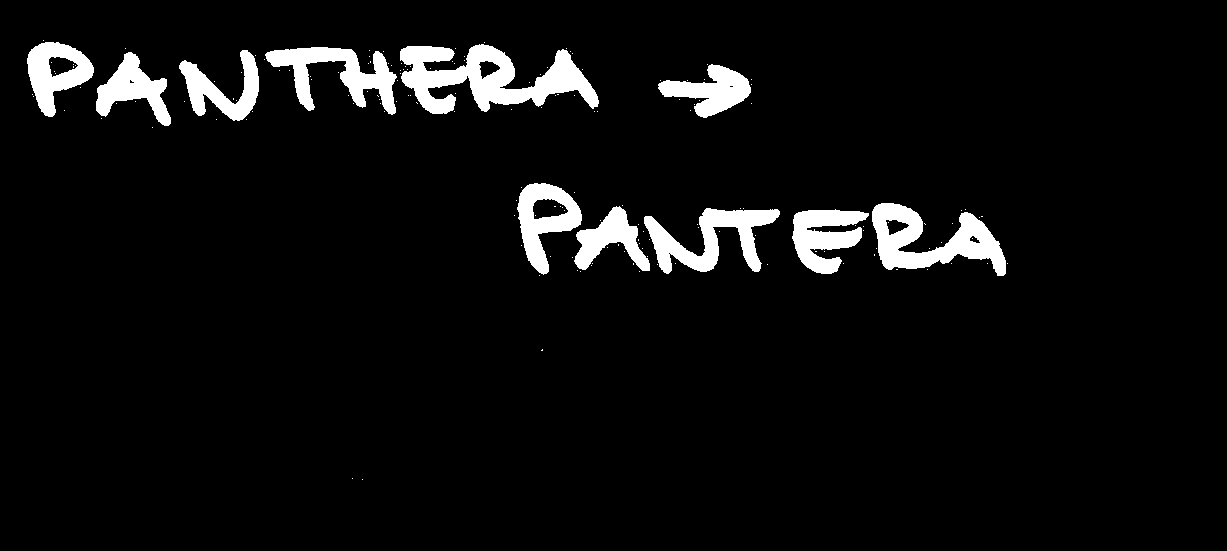 PANTHERA →
PANTERA